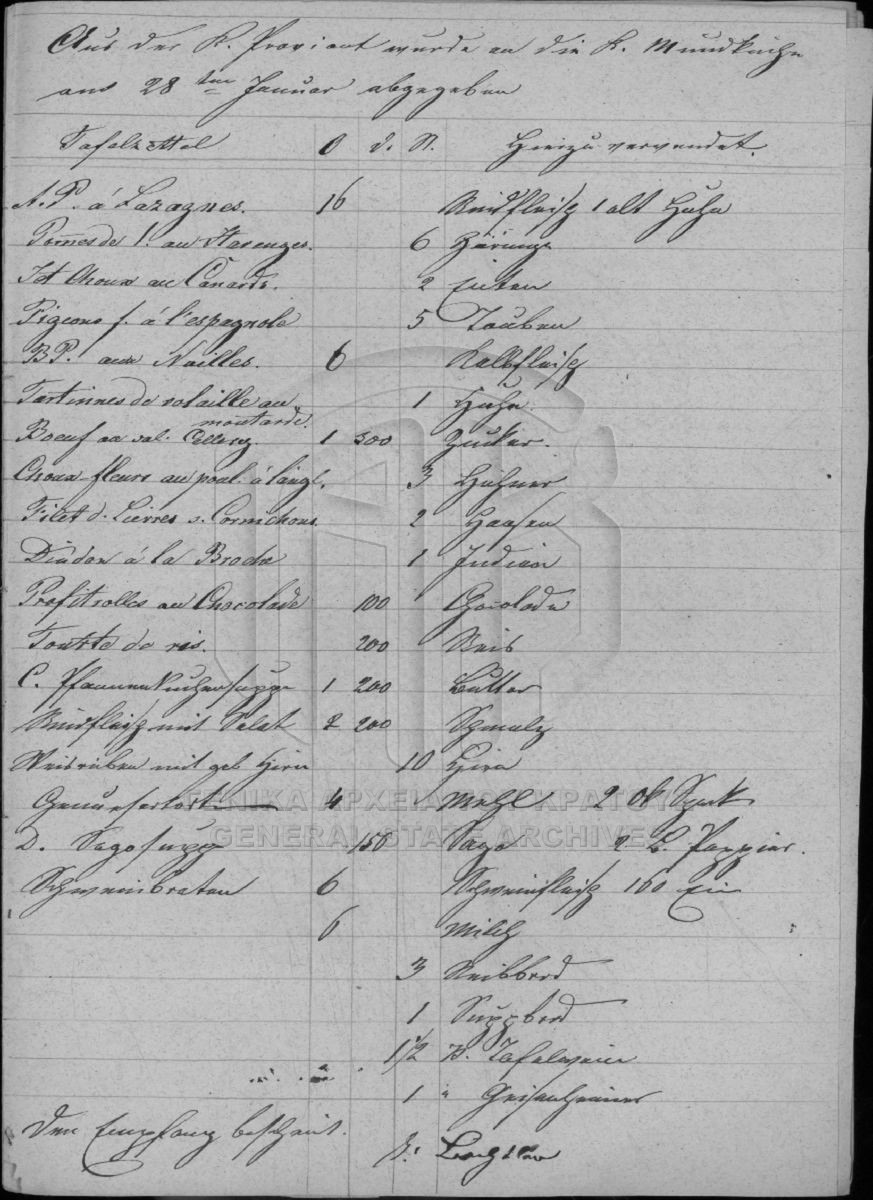 Aus der K. Proviant wurde an die K. Mundküche
am 28ten Januar abgegeben
Tafelzettel O d. St. Hierzu verwendet.
A. P. á Lazagnes. 16 Rindfleisch 1 alt Huhn
Pom̄es de t. au Harenges. 6 Häringe
Choux au Canards. 2 Enten
Pigeons f. á l'espagnole 5 Tauben
BP. aux Nuilles. 6 Kalbfleisch
Tartinnes de volaille au 1 Huhn
moutarde.
Boeuf au sal. Cellery. 1 500 Zucker.
Choux fleurs au poul. á l'angl. 3 Hühner
Filet d. Lievres s. Cornichons. 2 Haasen
Dindon á la Broche 1 Indian
Profitrolles au Chocolade 100 Chocolade
Tourte de ris. 200 Reis
C. Pfannenkuchensuppe 1 200 Butter
Rindfleisch mit Salat 2 200 Schmalz
Weisrüben mit geb Hirn 10 Hirn
4 Mehl 2 Ok Speck
D. Sagosupp 150 Sago 2 B. Pappier.
Schweinbraten 6 Schweinfleisch 100 Eier
6 Milch
3 Reibbrod
1 Suppbrod
1 1/2 B. Tafelwein
1 " Geisenheimer
Den Empfang bescheint.
ΓΕΝΙΚΑ ΑΡΧΕΙΑ ΤΟΥ ΚΡΑΤΟΥΣ
GENERAL STATE ARCHIVES